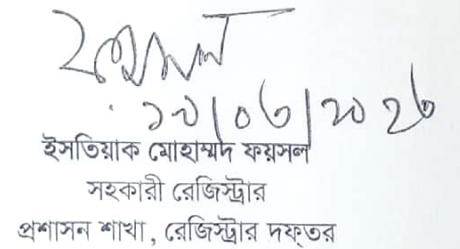 ফয়সল
ইসতিয়াক মোহাম্মদ ফয়সল
সহকারী রেজিস্ট্রার
প্রশাসন শাখা, রেজিস্ট্রার দফ্তর